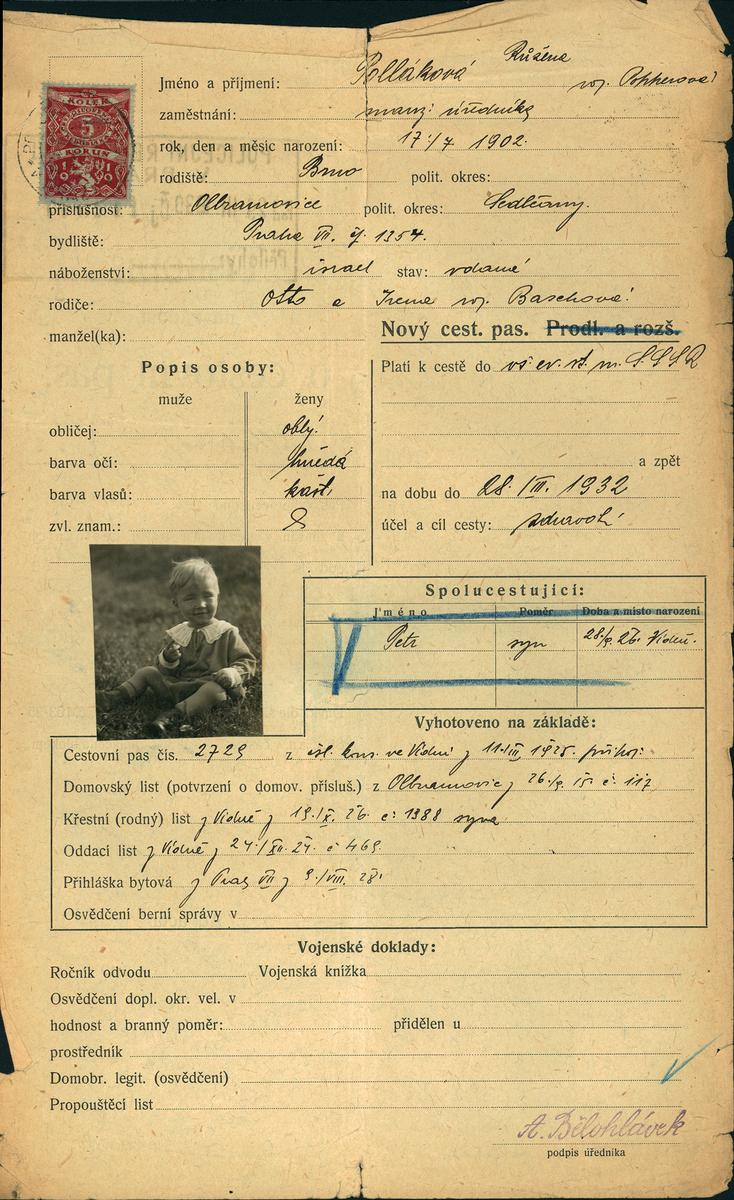 Růžena
Jméno a příjmení: Polláková roz. Popperová
zaměstnání: manž. úředníka
rok, den a měsíc narození: 17./7 1902.
rodiště: Brno polit. okres:
příslušnost: Olbramovice polit. okres: Sedlčany.
bydliště: Praha VII. čj. 1354.
náboženství: israel stav: vdaná
rodiče: Otto a Irena roz. Baschová
manžel(ka):
Nový cest. pas. Prodl. a rozš.
Popis osoby:
muže ženy
obličej: oblý
barva očí: hnědá
barva vlasů: kašt.
zvl. znam.:
Platí k cestě do vš. ev. st. m. SSSR
a zpět
na dobu do 28. /III. 1932
účel a cíl cesty: zdravot.
KOLEK
5
KORUN
Spolucestující:
Jméno Poměr Doba a místo narození
Petr syn 28/9. 26. Vídeň.
Vyhotoveno na základě:
Cestovní pas čís. 2729 z čsl. kons. ve Vídni z 11./III 1925.
Domovský list (potvrzení o domov. přísluš.) z Olbramovic z 26./9. 15. č. 117
Křestní (rodný) list z Vídně z 19./X. 26. č. 1388 syna
Oddací list z Vídně z 24./XII. 24. č 469.
Přihláška bytová z Prag VII z 9./VIII. 28.
Osvědčení berní správy v
Vojenské doklady:
Ročník odvodu Vojenská knížka
Osvědčení dopl. okr. vel. v
hodnost a branný poměr: přidělen u
prostředník
Domobr. legit. (osvědčení)
Propouštěcí list
A. Bělohlávek
podpis úředníka